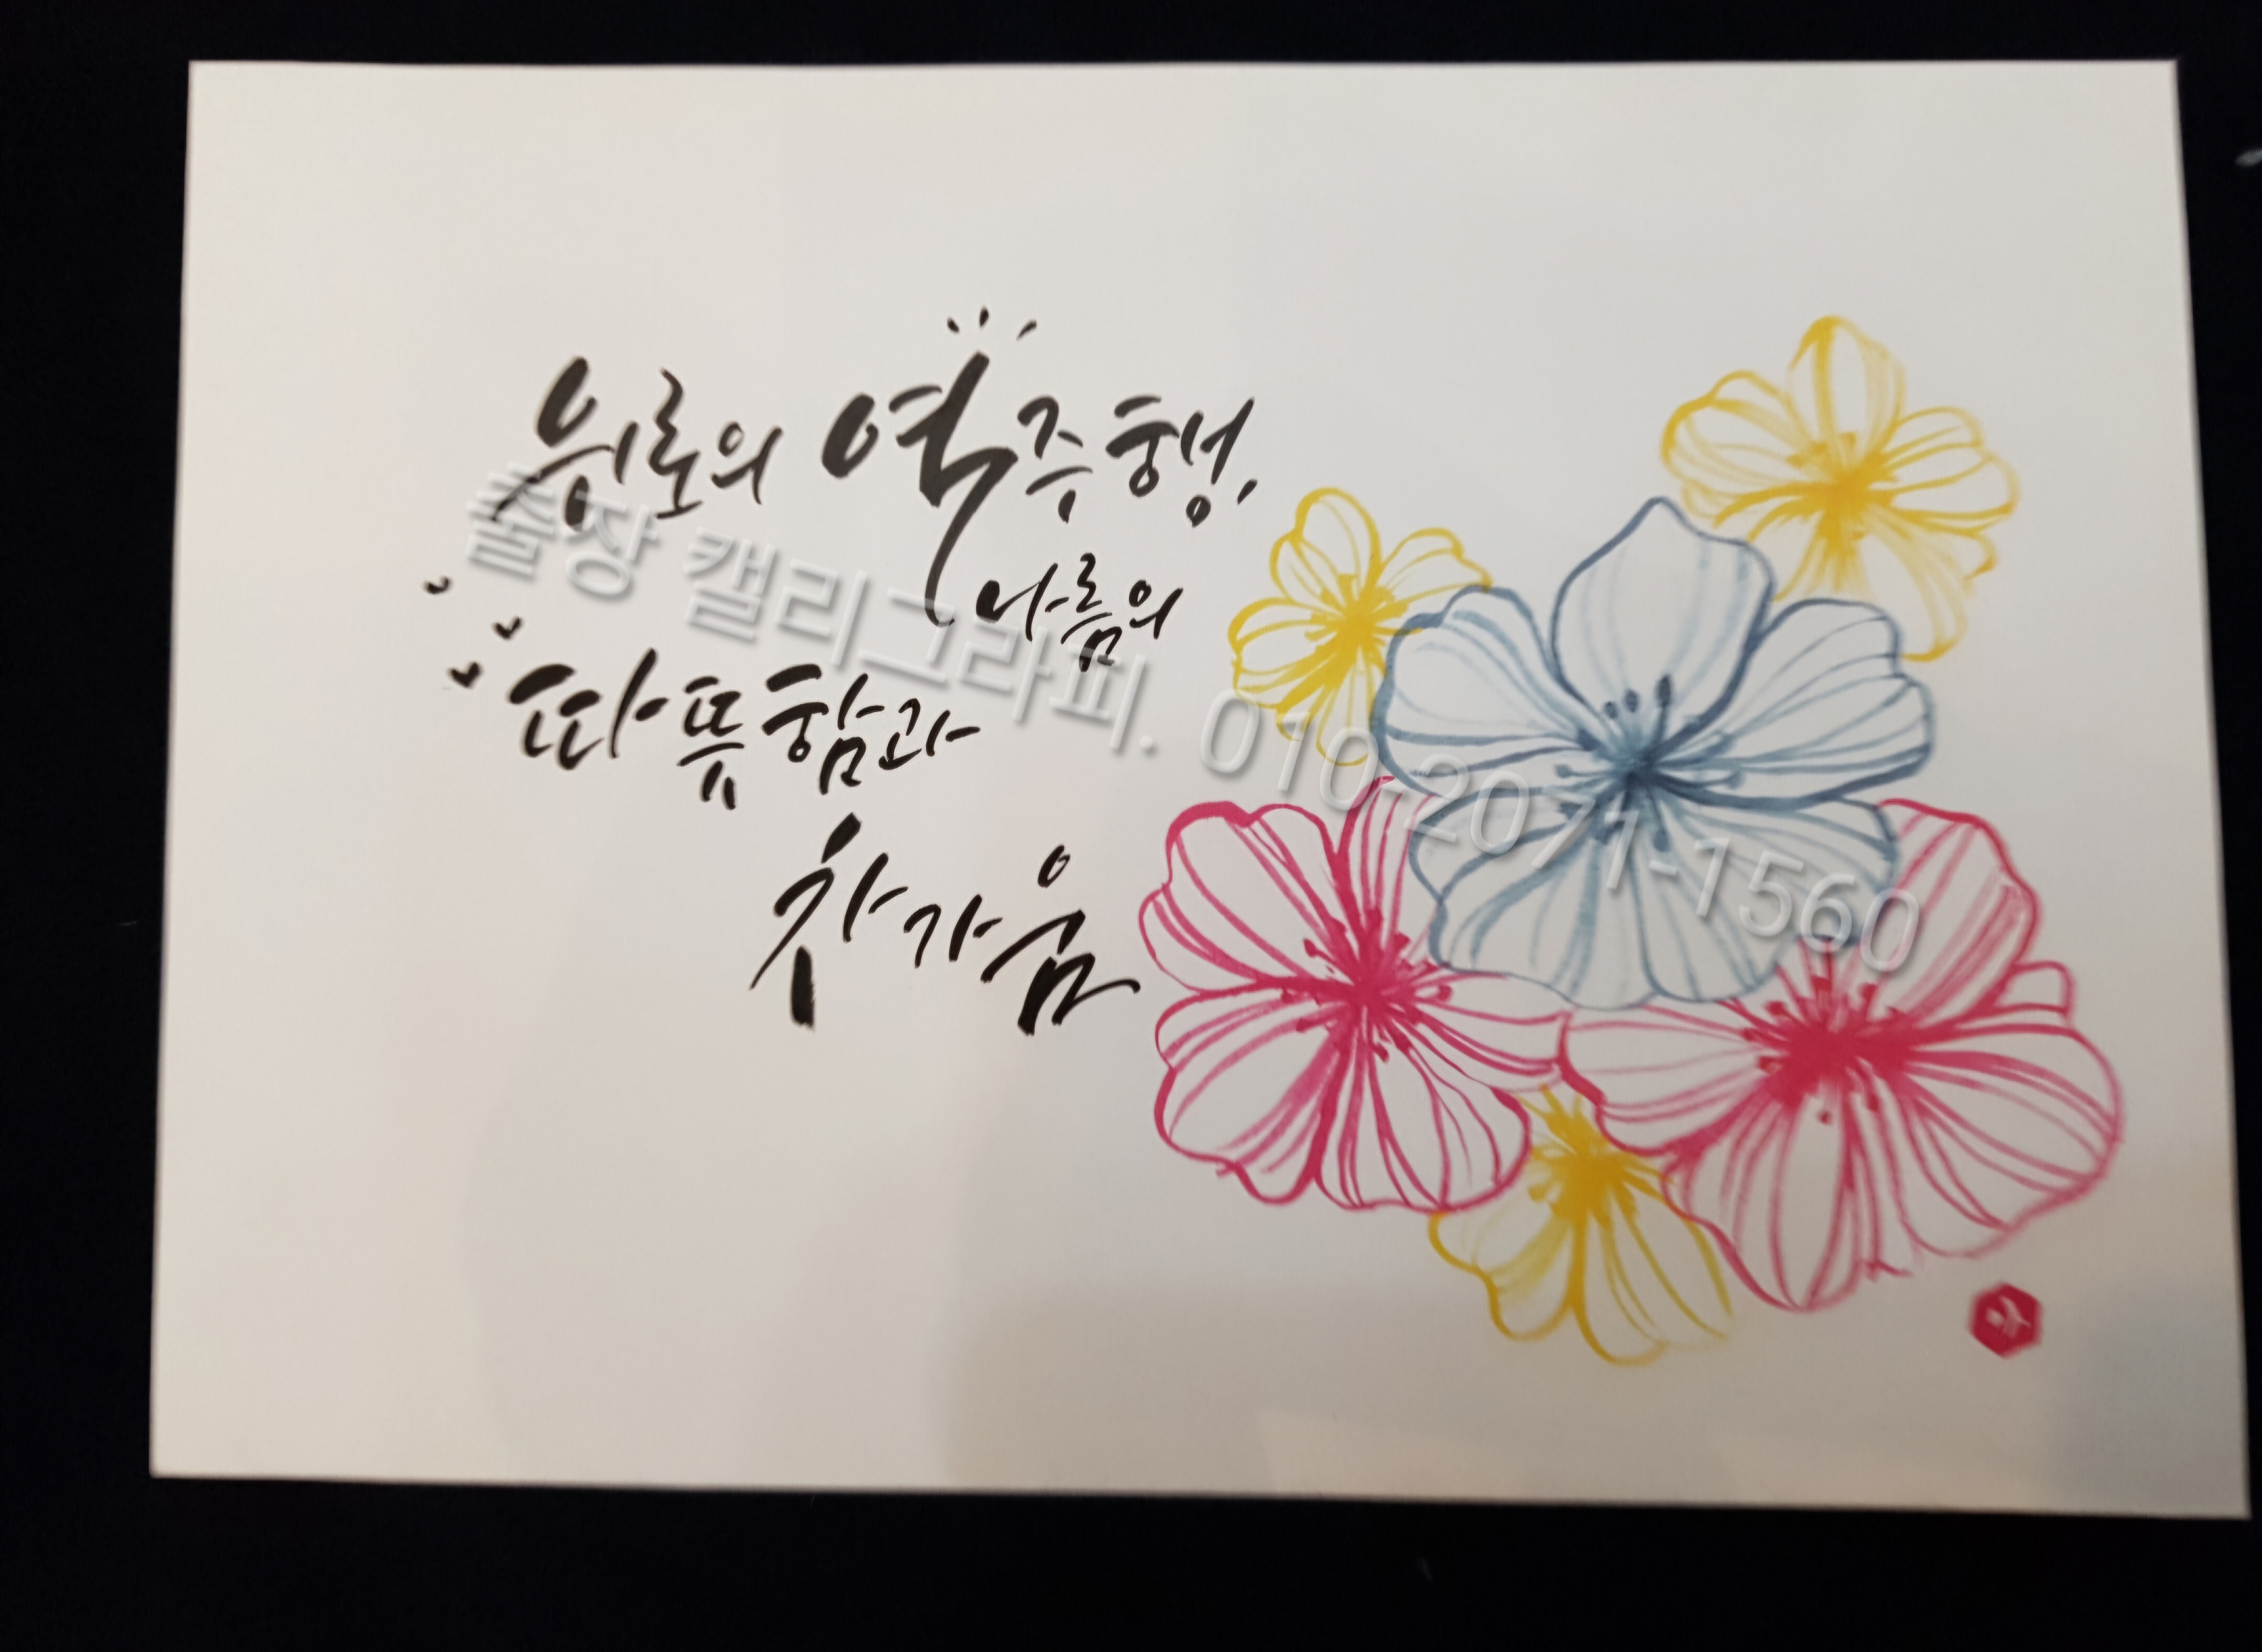 위로의 역주행,
나름의
따뜻함과
차가움
출장 캘리그라피. 010-2071-1560